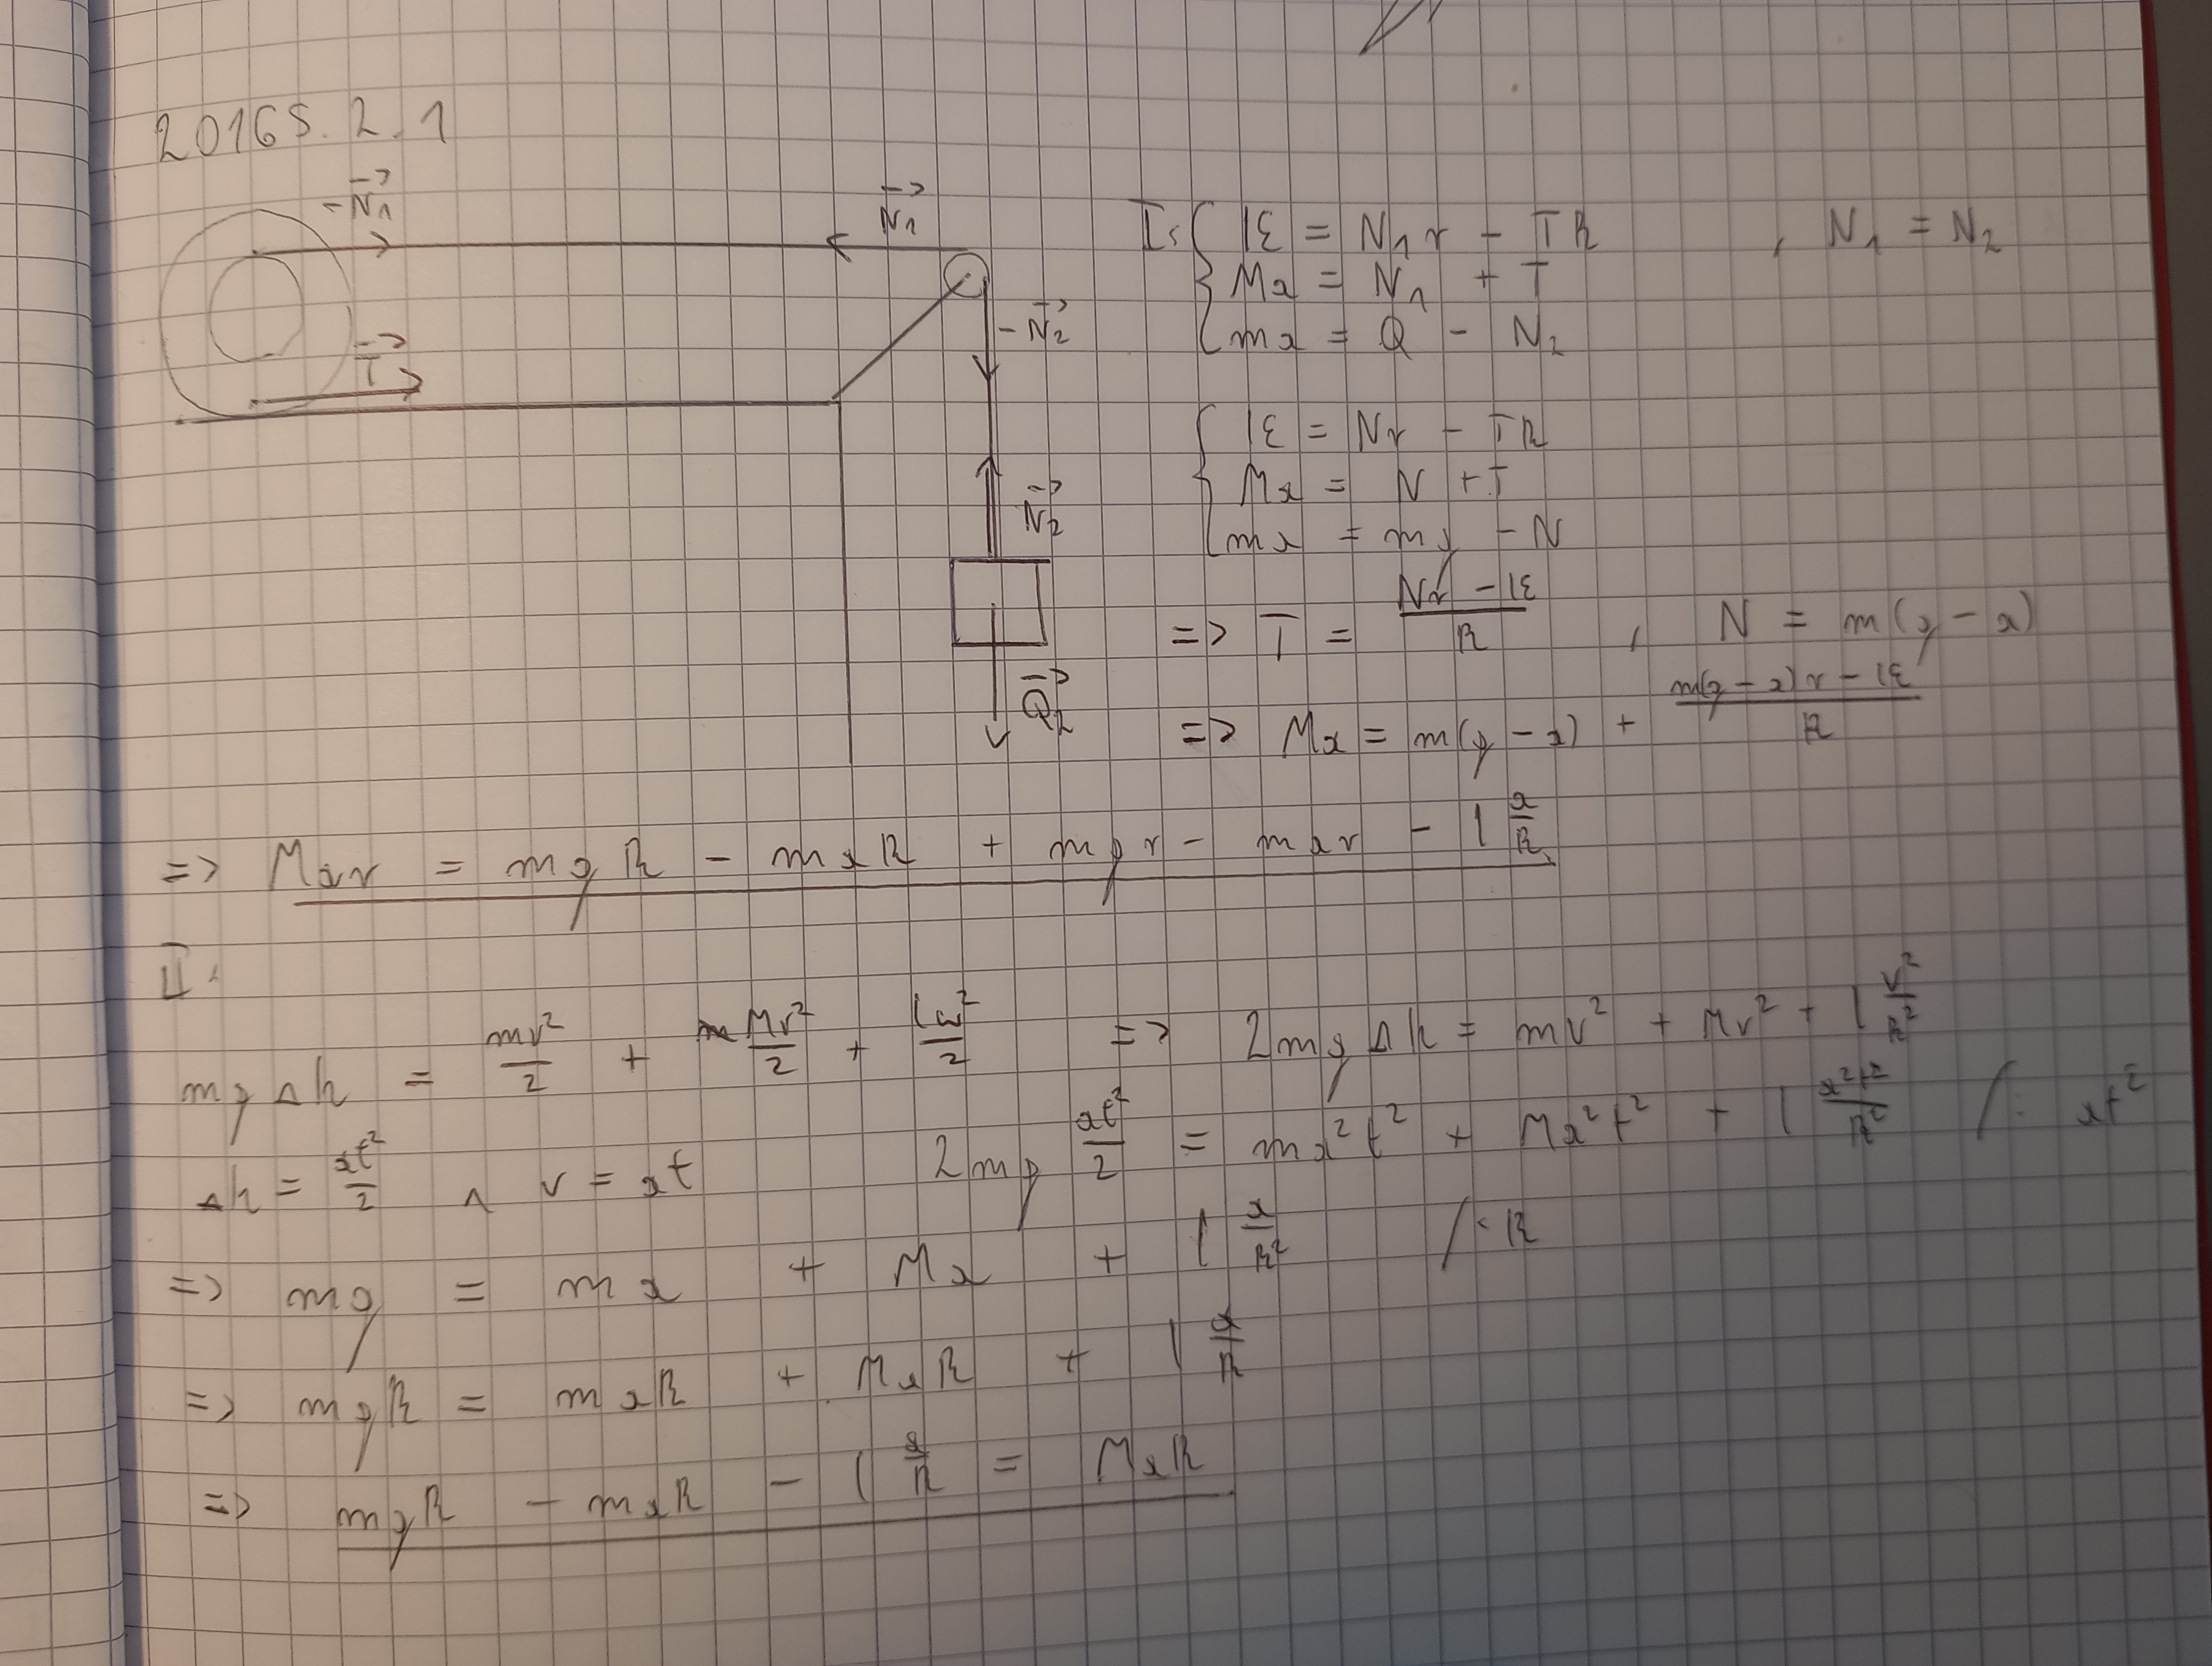 2016S.2.1
-N₁
N₁
-N₂
T
N₂
Q₂
I: { Iε = N₁r - TR , N₁ = N₂
Ma = N₁ + T
ma = Q - N₂
{ Iε = Nr - TR
Ma = N + T
ma = mg - N
=> T = (Nr - Iε)/R , N = m(g - a)
=> Ma = m(g - a) + (m(g - a)r - Iε)/R
=> Mar = mgR - maR + mgr - mar - I a/R
II:
mgΔh = mv²/2 + Mv²/2 + Iω²/2 => 2mgΔh = mv² + Mv² + I v²/R²
Δh = at²/2 ∧ v = at 2mg at²/2 = ma²t² + Ma²t² + I a²t²/R² /: at²
=> mg = ma + Ma + I a/R² /· R
=> mgR = maR + MaR + I a/R
=> mgR - maR - I a/R = MaR